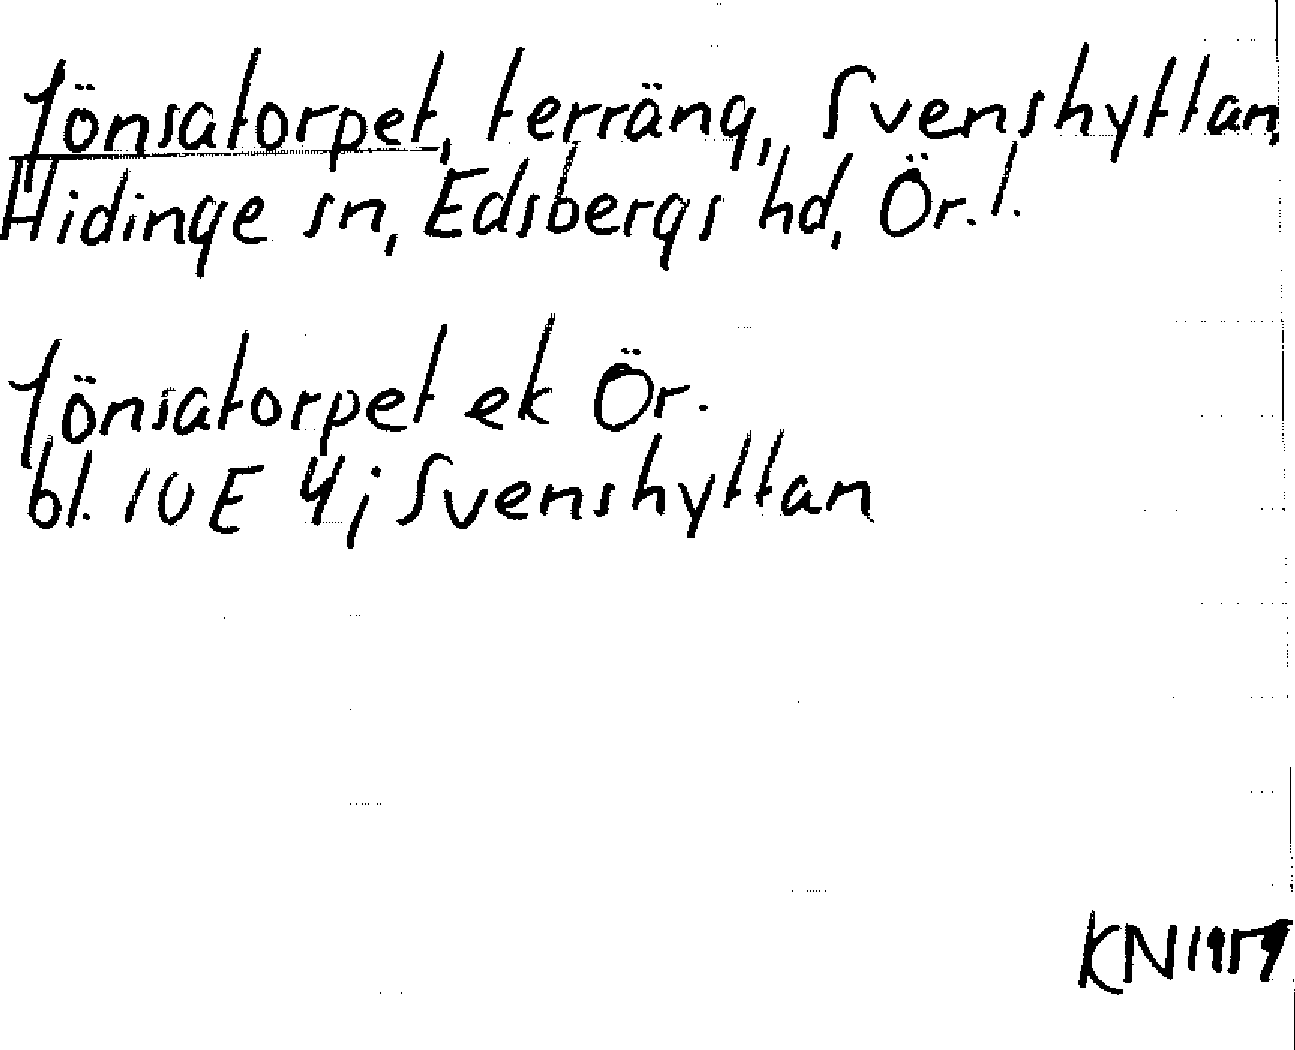 Jönsatorpet, terräng, Svenshyttan,
Hidinge sn, Edsbergs hd, Ör. l.
Jönsatorpet ek Ör.
bl. 10 E 4 j Svenshyttan
KN 1959